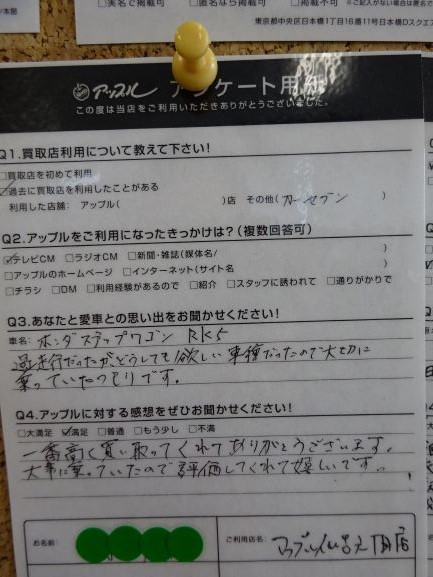 □実名で掲載可 □匿名なら掲載可 □掲載不可
東京都中央区日本橋1丁目16番11号日本橋Dスクエ
アップル アンケート用紙
この度は当店をご利用いただきありがとうございました。
Q1.買取店利用について教えて下さい!
□買取店を初めて利用
☑過去に買取店を利用したことがある
利用した店舗: アップル( )店 その他(カーセブン )
Q2.アップルをご利用になったきっかけは?(複数回答可)
☑テレビCM □ラジオCM □新聞・雑誌(媒体名/ )
□アップルのホームページ □インターネット(サイト名 )
□チラシ □DM □利用経験があるので □紹介 □スタッフに誘われて □通りがかりで
Q3.あなたと愛車との思い出をお聞かせください!
車名: ホンダステップワゴン RK5
過走行だったがどうしても欲しい車種だったので大切に
乗っていたつもりです。
Q4.アップルに対する感想をぜひお聞かせください!
□大満足 ☑満足 □普通 □もう少し □不満
一番高く買い取ってくれてありがとうございます。
大事に乗っていたので評価してくれて嬉しいです。
お名前 ご利用店名: アップル 店